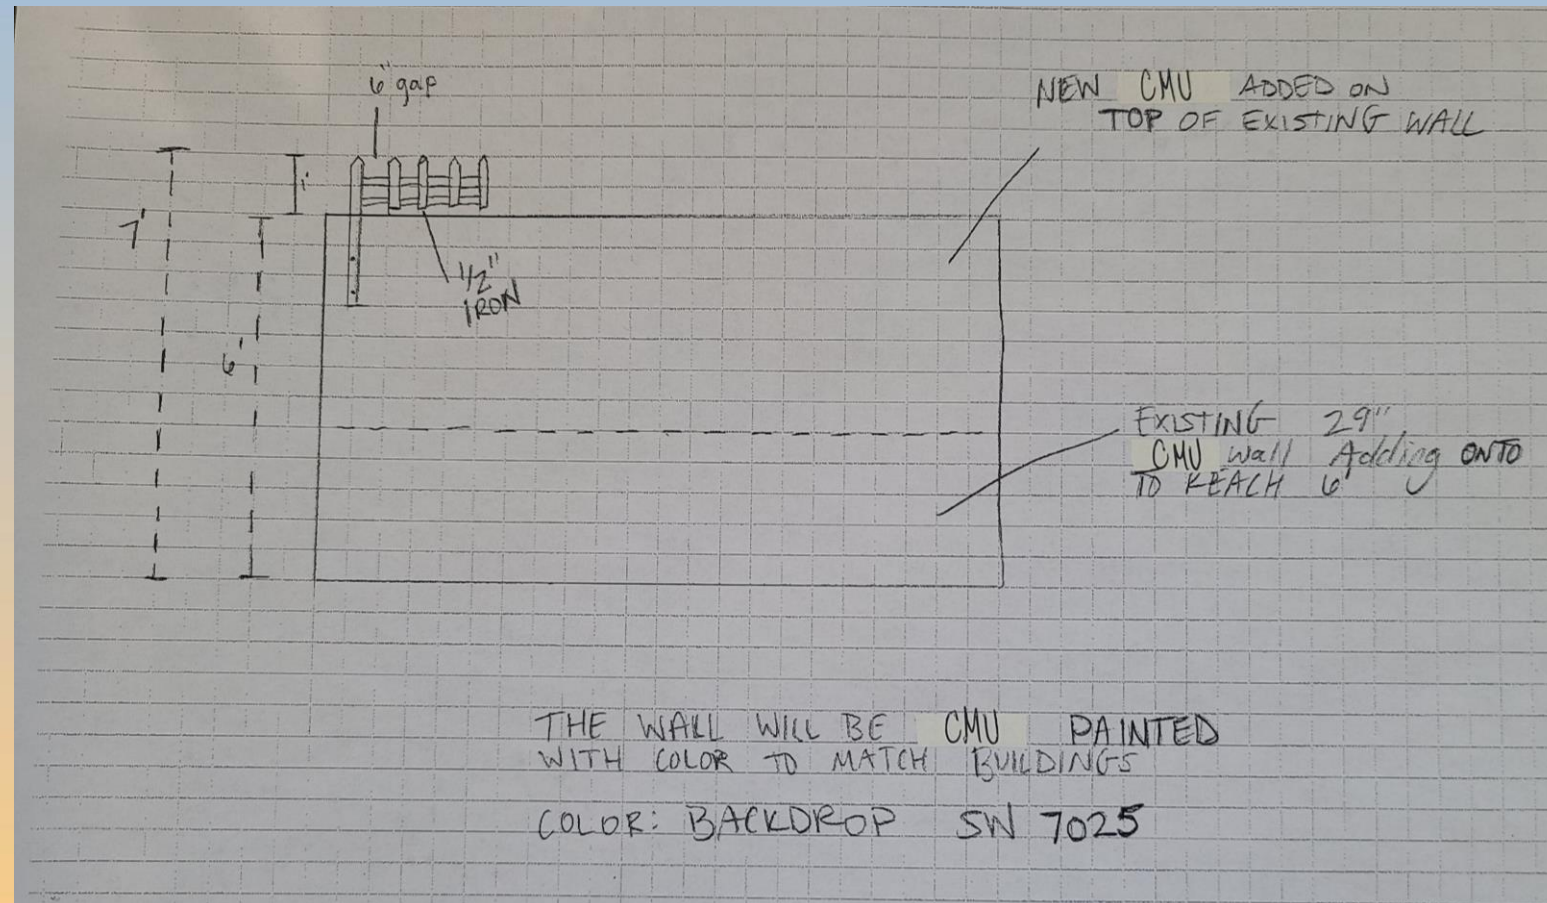 6" gap
NEW CMU ADDED ON
TOP OF EXISTING WALL
1'
7'
1/2"
IRON
6'
EXISTING 29"
CMU Wall Adding ONTO
TO REACH 6'
THE WALL WILL BE CMU PAINTED
WITH COLOR TO MATCH BUILDINGS
COLOR: BACKDROP SW 7025